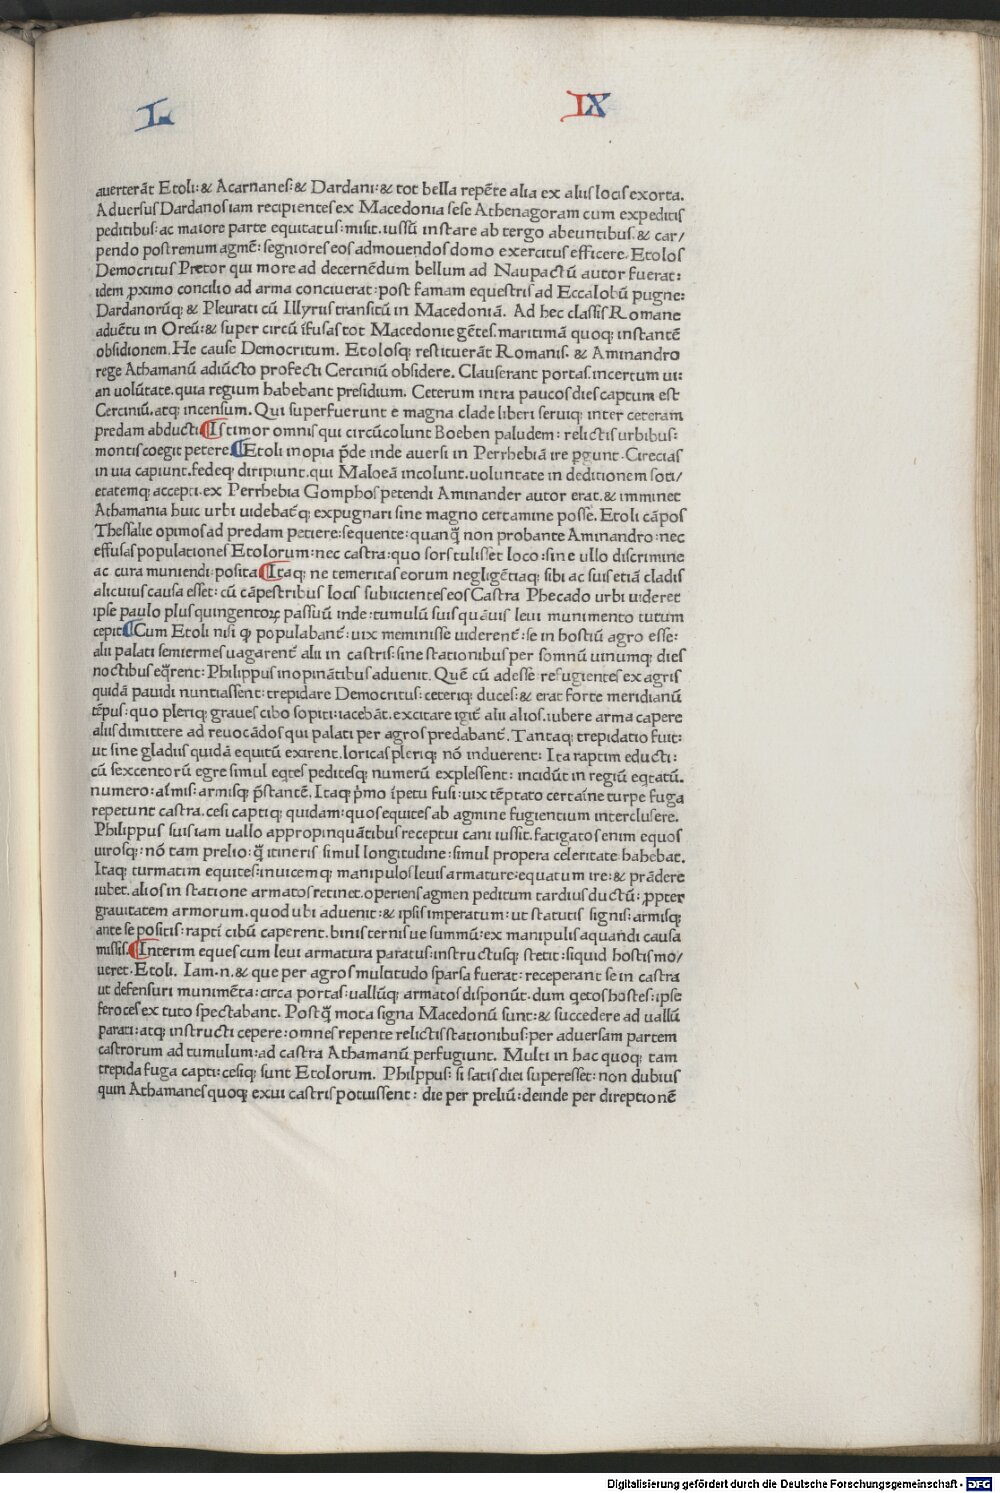 L IX
auerterāt Etoli: & Acarnanes: & Dardani: & tot bella repēte alia ex aliis locis exorta.
Aduersus Dardanos iam recipientes ex Macedonia sese Athenagoram cum expeditis
peditibus: ac maiore parte equitatus: misit. iussū instare ab tergo abeuntibus. & car/
pendo postremum agmē: segniores eos admouendos domo exercitus efficere. Etolos
Democritus Pretor qui more ad decernēdum bellum ad Naupactū autor fuerat:
idem ꝓximo concilio ad arma conciuerat: post famam equestris ad Eccalobū pugne:
Dardanorūq; & Pleurati cū Illyriis transitū in Macedoniā. Ad hec classis Romane
aduētu in Oreū: & super circū īfusas tot Macedonie gētes. maritimā quoq; instantē
obsidionem. He cause Democritum. Etolosq; restituerāt Romanis. & Aminandro
rege Athamanū adiūcto profecti Cerciniū obsidere. Clauserant portas. incertum ui:
an volūtate. quia regium habebant presidium. Ceterum intra paucos dies captum est
Cerciniū. atq; incensum. Qui superfuerunt e magna clade liberi seruiq; inter ceteram
predam abducti ¶Is timor omnis qui circūcolunt Boeben paludem: relictis urbibus:
montis coegit petere ¶Etoli inopia p̄de inde auersi in Perrhebiā ire ꝑgunt. Cirecias
in uia capiunt. fedeq; diripiunt. qui Maloeā incolunt. uoluntate in deditionem soci/
etatemq; accepti. ex Perrhebia Gomphos petendi Aminander autor erat. & imminet
Athamania huic urbi uidebat̄q; expugnari sine magno certamine posse. Etoli cāpos
Thessalie opimos ad predam petiere: sequente: quanq̄ non probante Aminandro: nec
effusas populationes Etolorum: nec castra: quo fors tulisset loco: sine ullo discrimine
ac cura muniendi posita ¶Itaq; ne temeritas eorum negligētiaq; sibi ac suis etiā cladis
alicuius causa esset: cū cāpestribus locis subiicientes eos Castra Phecado urbi uideret
ipse paulo plus quingentoꝝ passuū inde: tumulū suis quāuis leui munimento tutum
cepit ¶Cum Etoli nisi ꝙ populabant̄: uix meminisse uiderent̄: se in hostiū agro esse:
alii palati semiermes uagarent̄ alii in castris: sine stationibus per somnū uinumq; dies
noctibus eq̄rent: Philippus inopināt​ibus aduenit. Quē cū adesse refugientes ex agris
quidā pauidi nuntiassent: trepidare Democritus: ceteriq; duces: & erat forte meridianū
tēpus: quo pleriq; graues cibo sopiti: iacebāt. excitare igit̄ alii alios. iubere arma capere
aliis dimittere ad reuocādos qui palati per agros predabant̄. Tantaq; trepidatio fuit:
ut sine gladiis quidā equitū exirent. loricas pleriq; nō induerent: Ita raptim educti:
cū sexcentorū egre simul eq̄tes peditesq; numerū explessent: incidūt in regiū eq̄tatū.
numero: aīmis: armisq; p̄stantē. Itaq; p̄mo īpetu fusi: uix tēptato certaīne turpe fuga
repetunt castra. cesi captiq; quidam: quos equites ab agmine fugientium interclusere.
Philippus suis iam uallo appropinquātibus receptui cani iussit. fatigatos enim equos
uirosq;: nō tam prelio: q̄ itineris simul longitudine: simul propera celeritate habebat.
Itaq; turmatim equites: inuicemq; manipulos leuis armature: equatum ire: & prādere
iubet. alios in statione armatos retinet. operiens agmen peditum tardius ductū: ꝓpter
grauitatem armorum. quod ubi aduenit: & ipsis imperatum: ut statutis signis: armisq;
ante se positis: raptī cibū caperent. binis ternisue summū: ex manipulis aquandi causa
missis. ¶Interim eques cum leui armatura paratus: instructusq; stetit: siquid hostis mo/
ueret. Etoli. Iam .n. & que per agros multitudo sparsa fuerat: receperant se in castra
ut defensuri munimēta: circa portas: uallūq; armatos disponūt. dum q̄etos hostes: ipse
feroces ex tuto spectabant. Postq̄ mota signa Macedonū sunt: & succedere ad uallū
parati: atq; instructi cepere: omnes repente relictis stationibus: per aduersam partem
castrorum ad tumulum: ad castra Athamanū perfugiunt. Multi in hac quoq; tam
trepida fuga capti: cesiq; sunt Etolorum. Philppus: si satis diei superesset: non dubius
quin Athamanes quoq; exui castris potuissent: die per preliū: deinde per direptionē
Digitalisierung gefördert durch die Deutsche Forschungsgemeinschaft - DFG